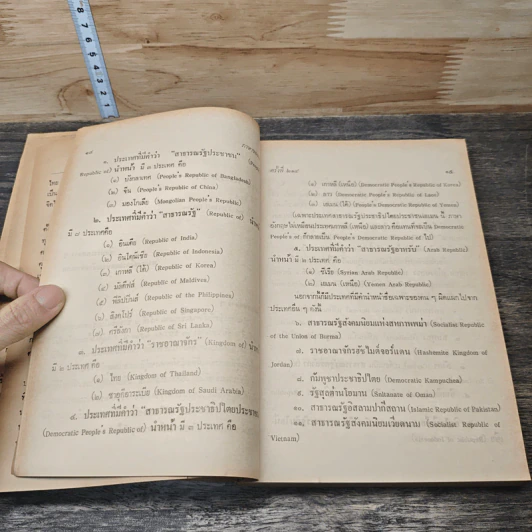 ๑๔
๑. ประเทศที่มีคำว่า "สาธารณรัฐประชาชน" (People's
Republic of) นำหน้า มี ๓ ประเทศ คือ
(๑) บังกลาเทศ (People's Republic of Bangladesh)
(๒) จีน (People's Republic of China)
(๓) มองโกเลีย (Mongolian People's Republic)
๒. ประเทศที่มีคำว่า "สาธารณรัฐ" (Republic of) นำหน้า
มี ๗ ประเทศคือ
(๑) อินเดีย (Republic of India)
(๒) อินโดนีเซีย (Republic of Indonesia)
(๓) เกาหลี (ใต้) (Republic of Korea)
(๔) มัลดีฟส์ (Republic of Maldives)
(๕) ฟิลิปปินส์ (Republic of the Philippines)
(๖) สิงคโปร์ (Republic of Singapore)
(๗) ศรีลังกา (Republic of Sri Lanka)
๓. ประเทศที่มีคำว่า "ราชอาณาจักร" (Kingdom of) นำหน้า
มี ๒ ประเทศ คือ
(๑) ไทย (Kingdom of Thailand)
(๒) ซาอุดีอาระเบีย (Kingdom of Saudi Arabia)
๔. ประเทศที่มีคำว่า "สาธารณรัฐประชาธิปไตยประชาชน"
(Democratic People's Republic of) นำหน้า มี ๓ ประเทศ คือ
๑๕
(๑) เกาหลี (เหนือ) (Democratic People's Republic of Korea)
(๒) ลาว (Democratic People's Republic of Laos)
(๓) เยเมน (ใต้) (Democratic People's Republic of Yemen)
People's of) ก็กลายเป็น People's Democratic Republic of ไป)
๕. ประเทศที่มีคำว่า "สาธารณรัฐอาหรับ" (Arab Republic)
นำหน้า มี ๒ ประเทศ คือ
(๑) ซีเรีย (Syrian Arab Republic)
(๒) เยเมน (เหนือ) (Yemen Arab Republic)
นอกจากนี้ก็มีประเทศที่มีคำนำหน้าชื่อเฉพาะของตน ๆ ผิดแผกไปจาก
ประเทศอื่น ๆ ดังนี้
๖. สาธารณรัฐสังคมนิยมแห่งสหภาพพม่า (Socialist Republic
of the Union of Burma)
๗. ราชอาณาจักรฮัชไมต์จอร์แดน (Hashemite Kingdom of
Jordan)
๘. กัมพูชาประชาธิปไตย (Democratic Kampuchea)
๙. รัฐสุลต่านโอมาน (Sultanate of Oman)
๑๐. สาธารณรัฐอิสลามปากีสถาน (Islamic Republic of Pakistan)
๑๑. สาธารณรัฐสังคมนิยมเวียดนาม (Socialist Republic of
Vietnam)